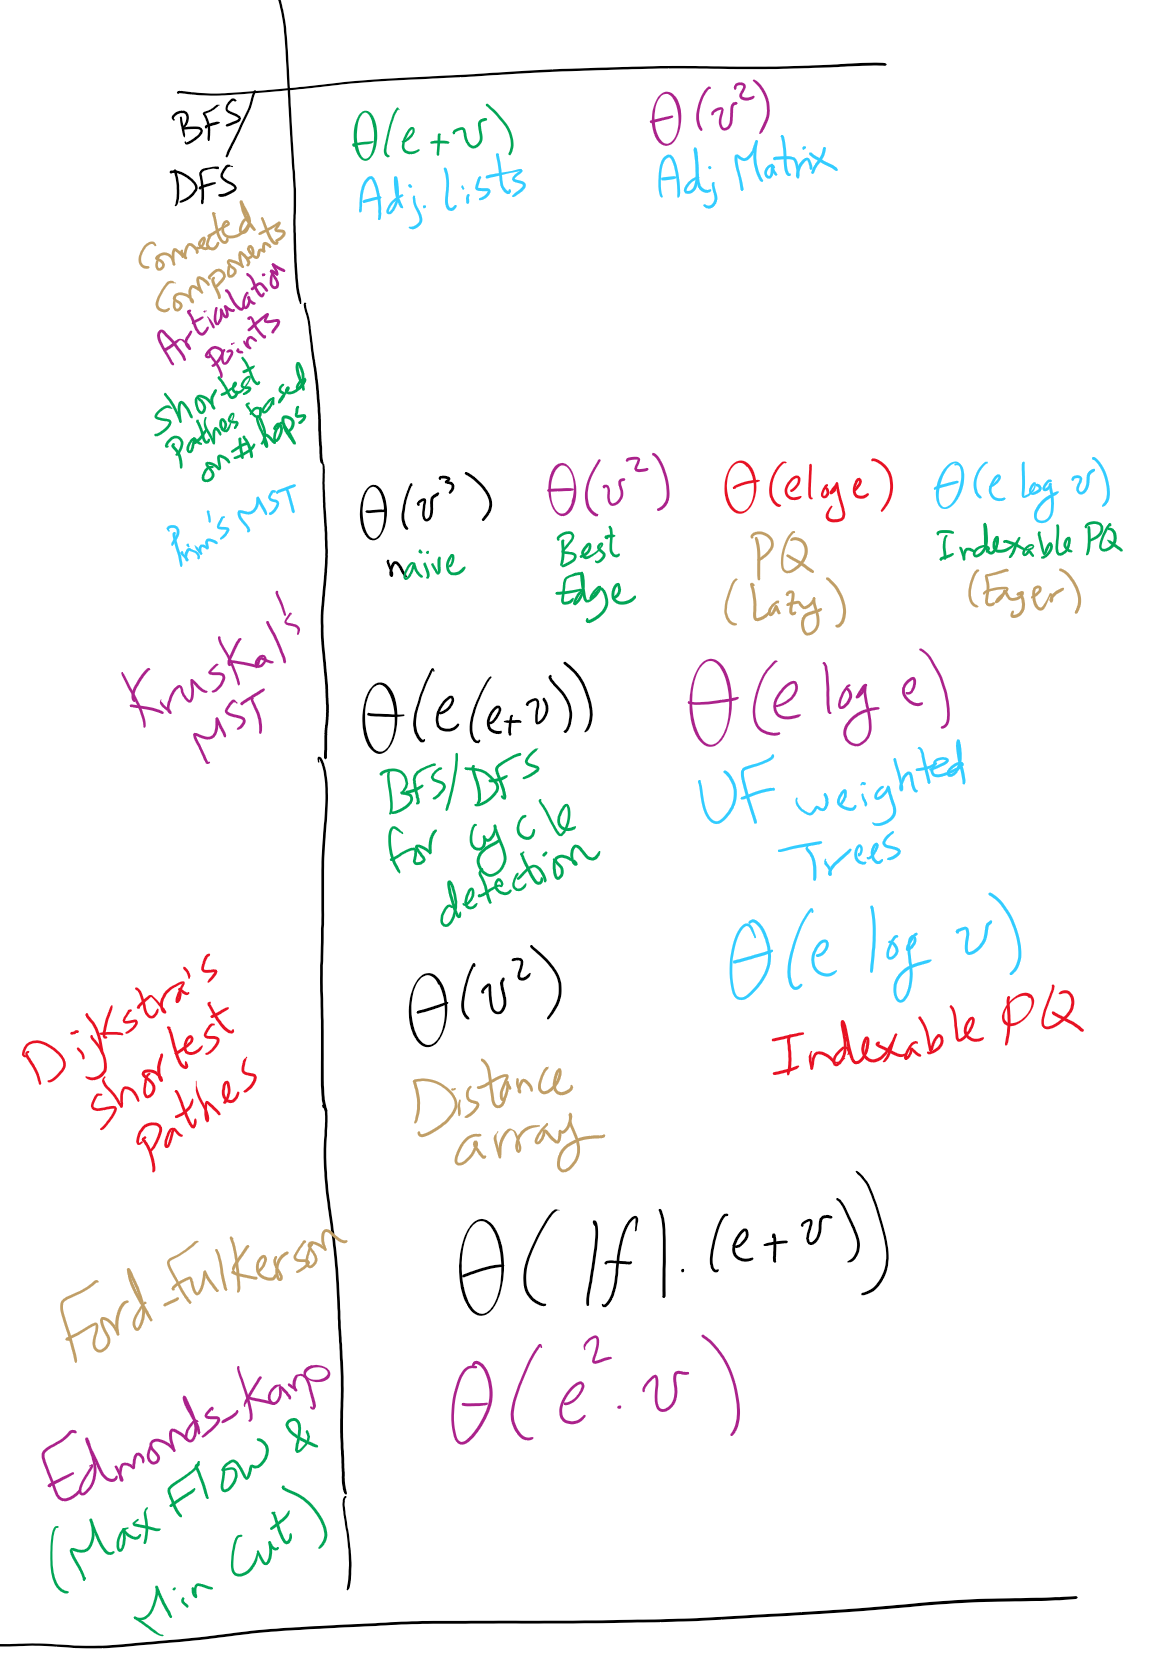 BFS/
DFS
θ(e+v)
Adj. Lists
θ(v²)
Adj Matrix
Connected
Components
Articulation
Points
Shortest
Pathes based
on # hops
Prim's MST
θ(v³)
naive
θ(v²)
Best
Edge
θ(e log e)
PQ
(Lazy)
θ(e log v)
Indexable PQ
(Eager)
Kruskal's
MST
θ(e(e+v))
BFS/DFS
for cycle
detection
θ(e log e)
UF weighted
Trees
Dijkstra's
shortest
pathes
θ(v²)
Distance
array
θ(e log v)
Indexable PQ
Ford-Fulkerson
θ(|f|.(e+v))
Edmonds-Karp
(Max Flow &
Min Cut)
θ(e².v)